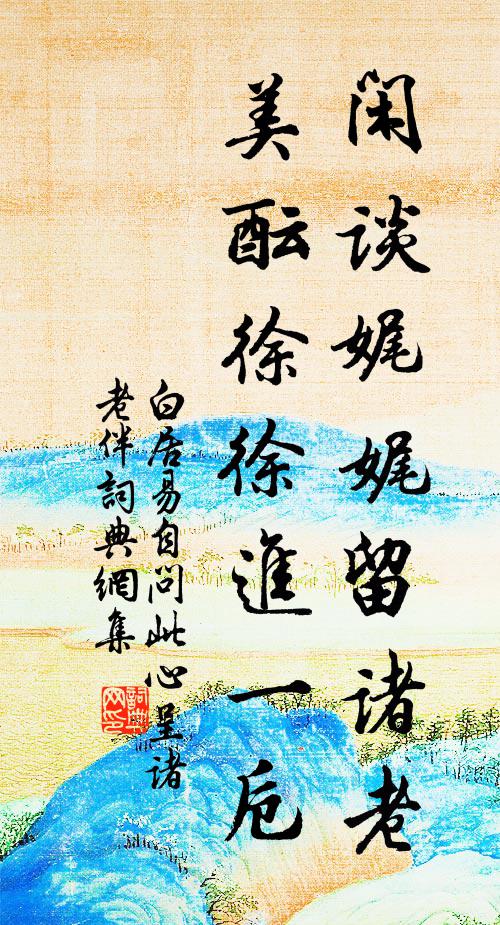 闲谈娓娓留诸老
美酝徐徐進一卮
白居易自问此心呈诸
老伴詞典網集